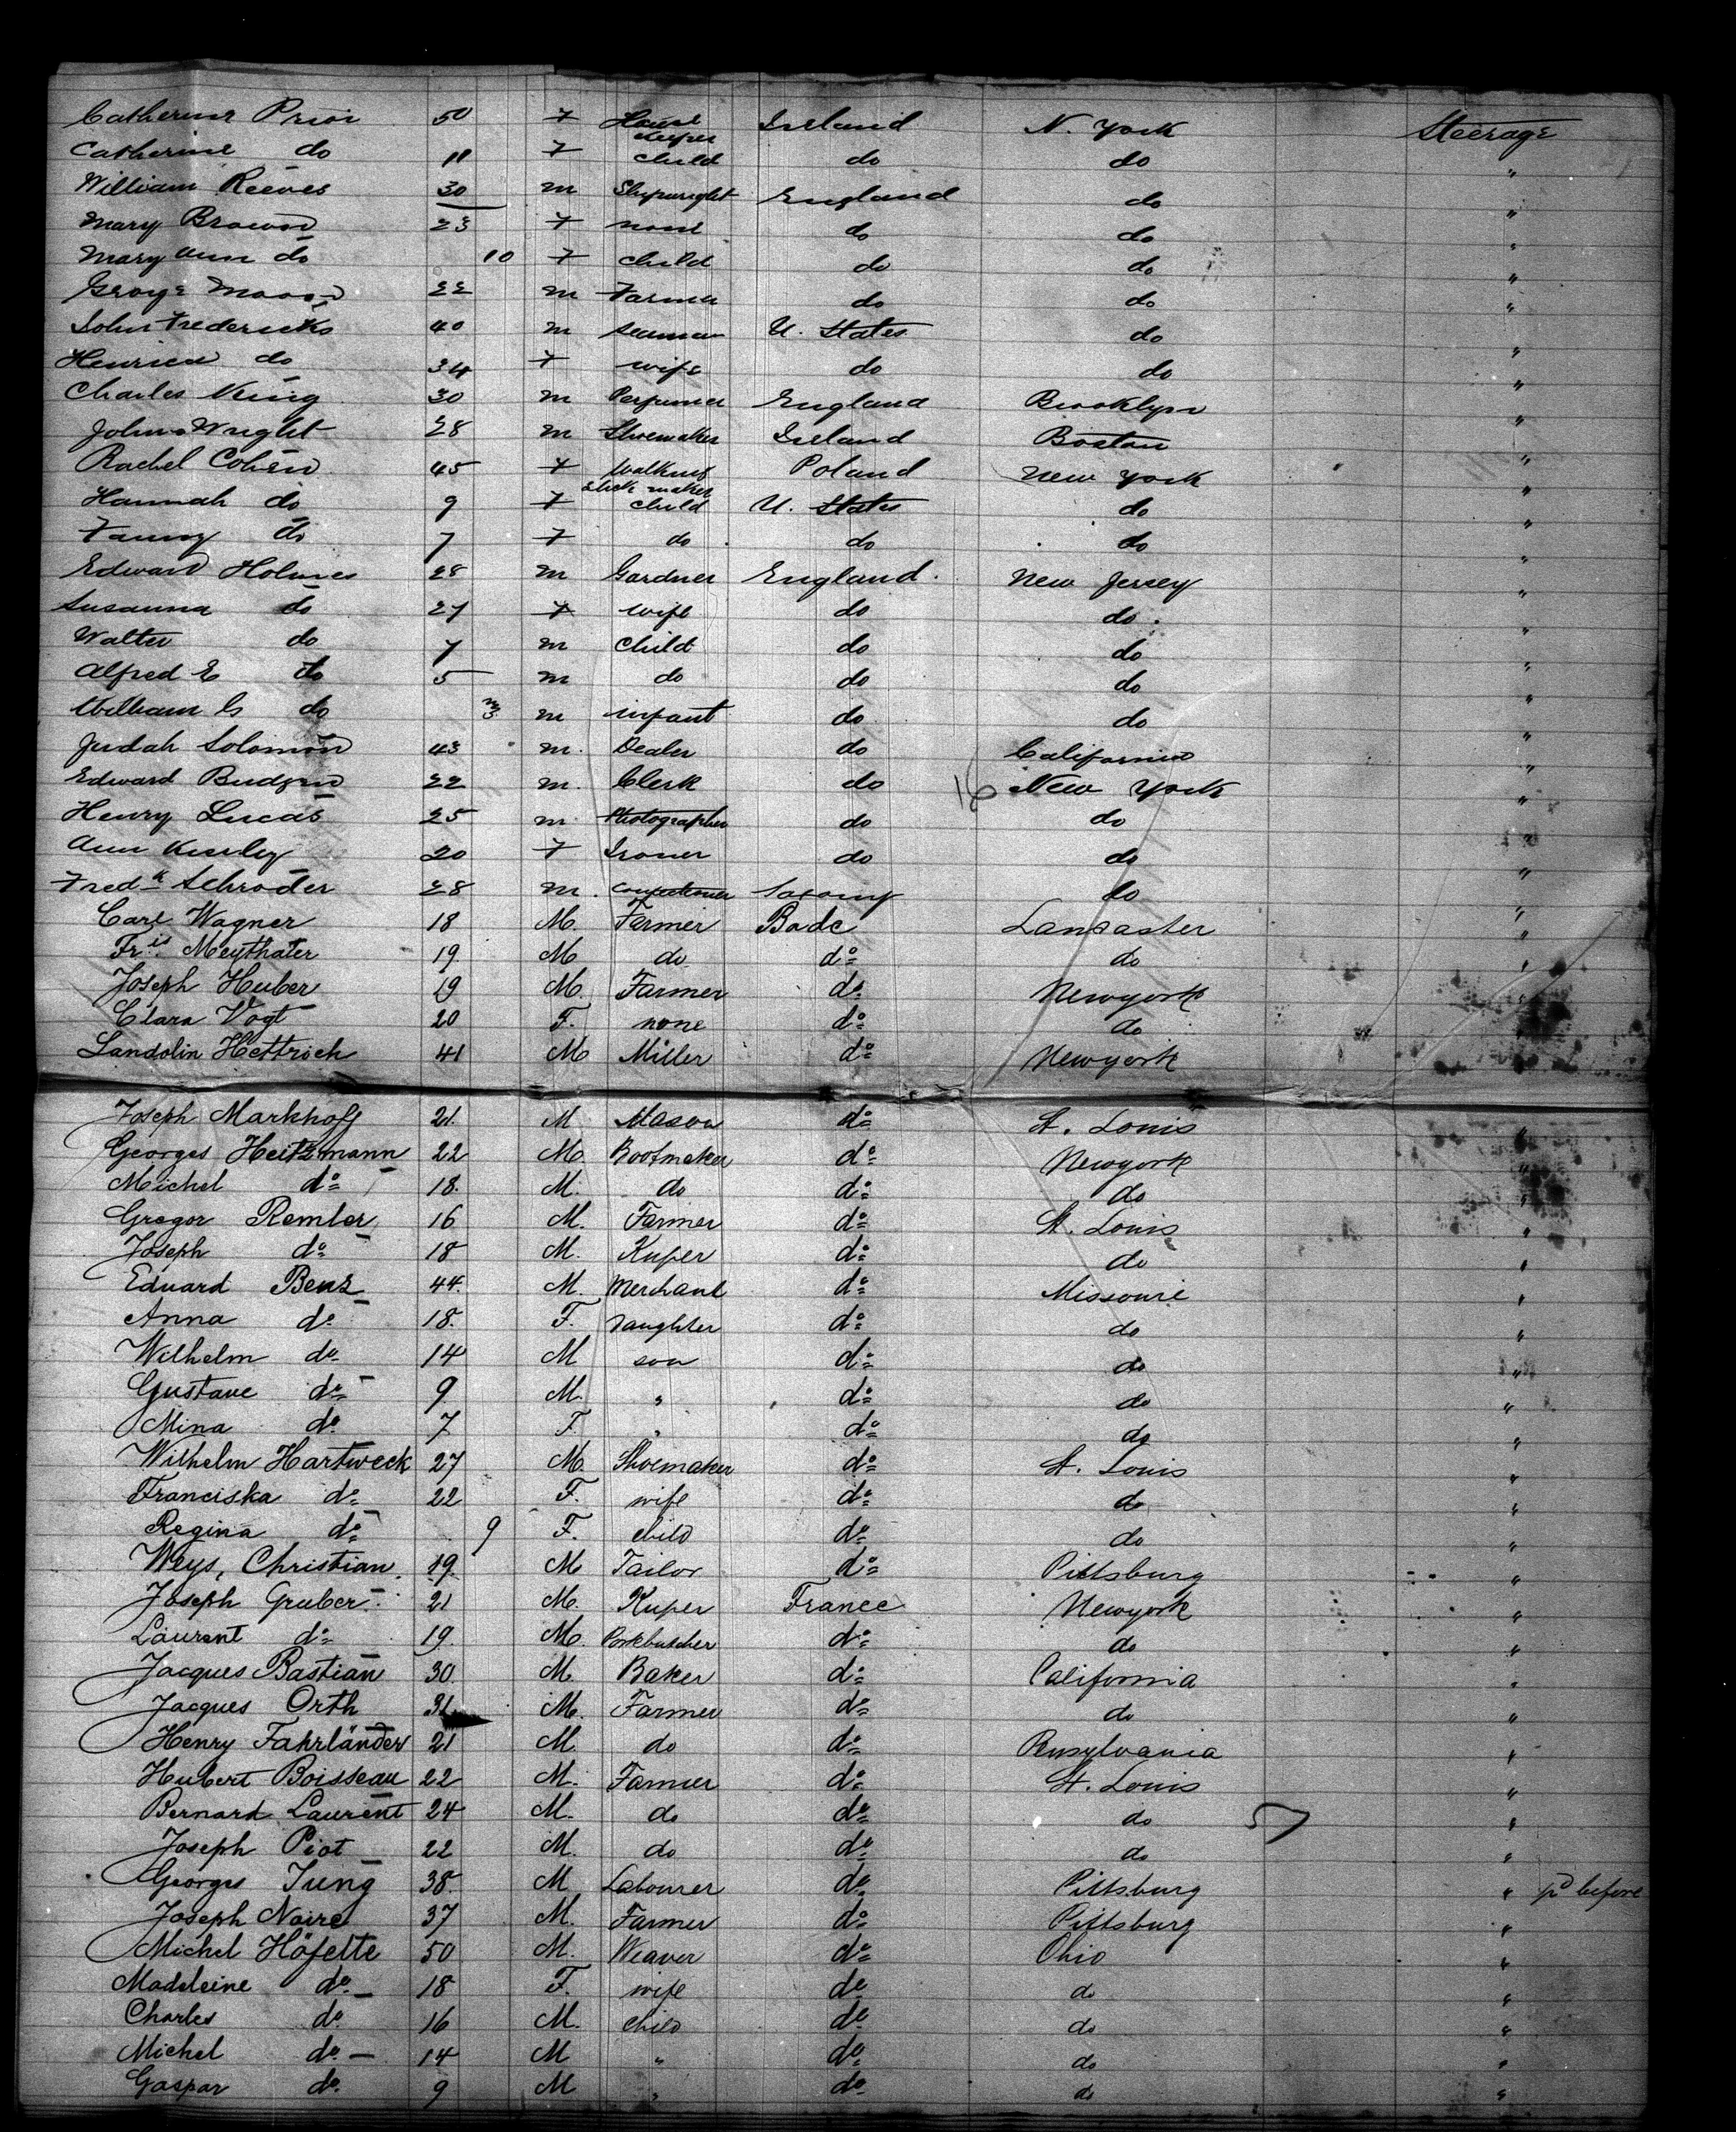 Catherine Prior 50 F House keeper Ireland N. York Steerage
Catherine do 11 F child do do "
William Reeves 30 m Shipwright England do "
Mary Brown 23 F none do do "
Mary Ann do 10 F child do do "
George Moon 22 m Farmer do do "
John Fredericks 40 m seaman U. States do "
do 34 F wife do do "
Charles King 30 m Perfumer England Brooklyn "
John Wright 28 m Shoemaker Ireland Boston "
Rachel Cohen 45 F Walking stick maker Poland New York "
Hannah do 9 F child U. States do "
Fanny do 7 F do do do "
Edward Holmes 28 m Gardner England New Jersey "
Susanna do 27 F wife do do "
Walter do 7 m child do do "
Alfred E do 5 m do do do "
William G do m infant do do "
Judah Solomon 43 m. Dealer do California "
Edward Budgen 22 m. Clerk do New York "
Henry Lucas 25 m Photographer do do "
Ann 20 F Ironer do do "
Fredk Schroder 28 m. Confectioner Saxony do "
Carl Wagner 18 M. Farmer Bade Lancaster "
Fris. Meythaler 19 M do do do "
Joseph Huber 19 M. Farmer do Newyork "
Clara Vogt 20 F. none do do "
Landolin Hettrich 41 M Miller do Newyork "
Joseph Markhoff 21. M Mason do St. Louis "
Georges Heitzmann 22 M. Bootmaker do Newyork "
Michel do 18. M. do do do "
Gregor Remler 16 M. Farmer do St. Louis "
Joseph do 18 M. Kuper do do "
Eduard Benz 44. M. Merchant do Missouri "
Anna do 18. F. Daughter do do "
Wilhelm do 14 M son do do "
Gustave do 9 M. " do do "
Mina do 7 F. " do do "
Wilhelm Hartweck 27 M. Shoemaker do St. Louis "
Franciska do 22 F. wife do do "
Regina do 9 F. child do do "
Weys, Christian. 19. M Tailor do Pittsburg "
Joseph Gruber 21 M. Kuper France Newyork "
Laurent do 19. M. Porkbutcher do do "
Jacques Bastian 30. M. Baker do California "
Jacques Orth 31 M. Farmer do do "
Henry Fahrländer 21 M. do do Pensylvania "
Hubert Boisseau 22 M. Farmer do St. Louis "
Bernard Laurent 24 M. do do do 57 "
Joseph Piot 22 M. do do do "
Georges Jung 38. M Labourer do Pittsburg " pd before
Joseph Noire 37 M. Farmer do Pittsburg "
Michel Höfelte 50 M. Weaver do Ohio "
Madeleine do 18 F. wife do do "
Charles do 16 M. child do do "
Michel do 14 M " do do "
Gaspar do 9 M " do do "